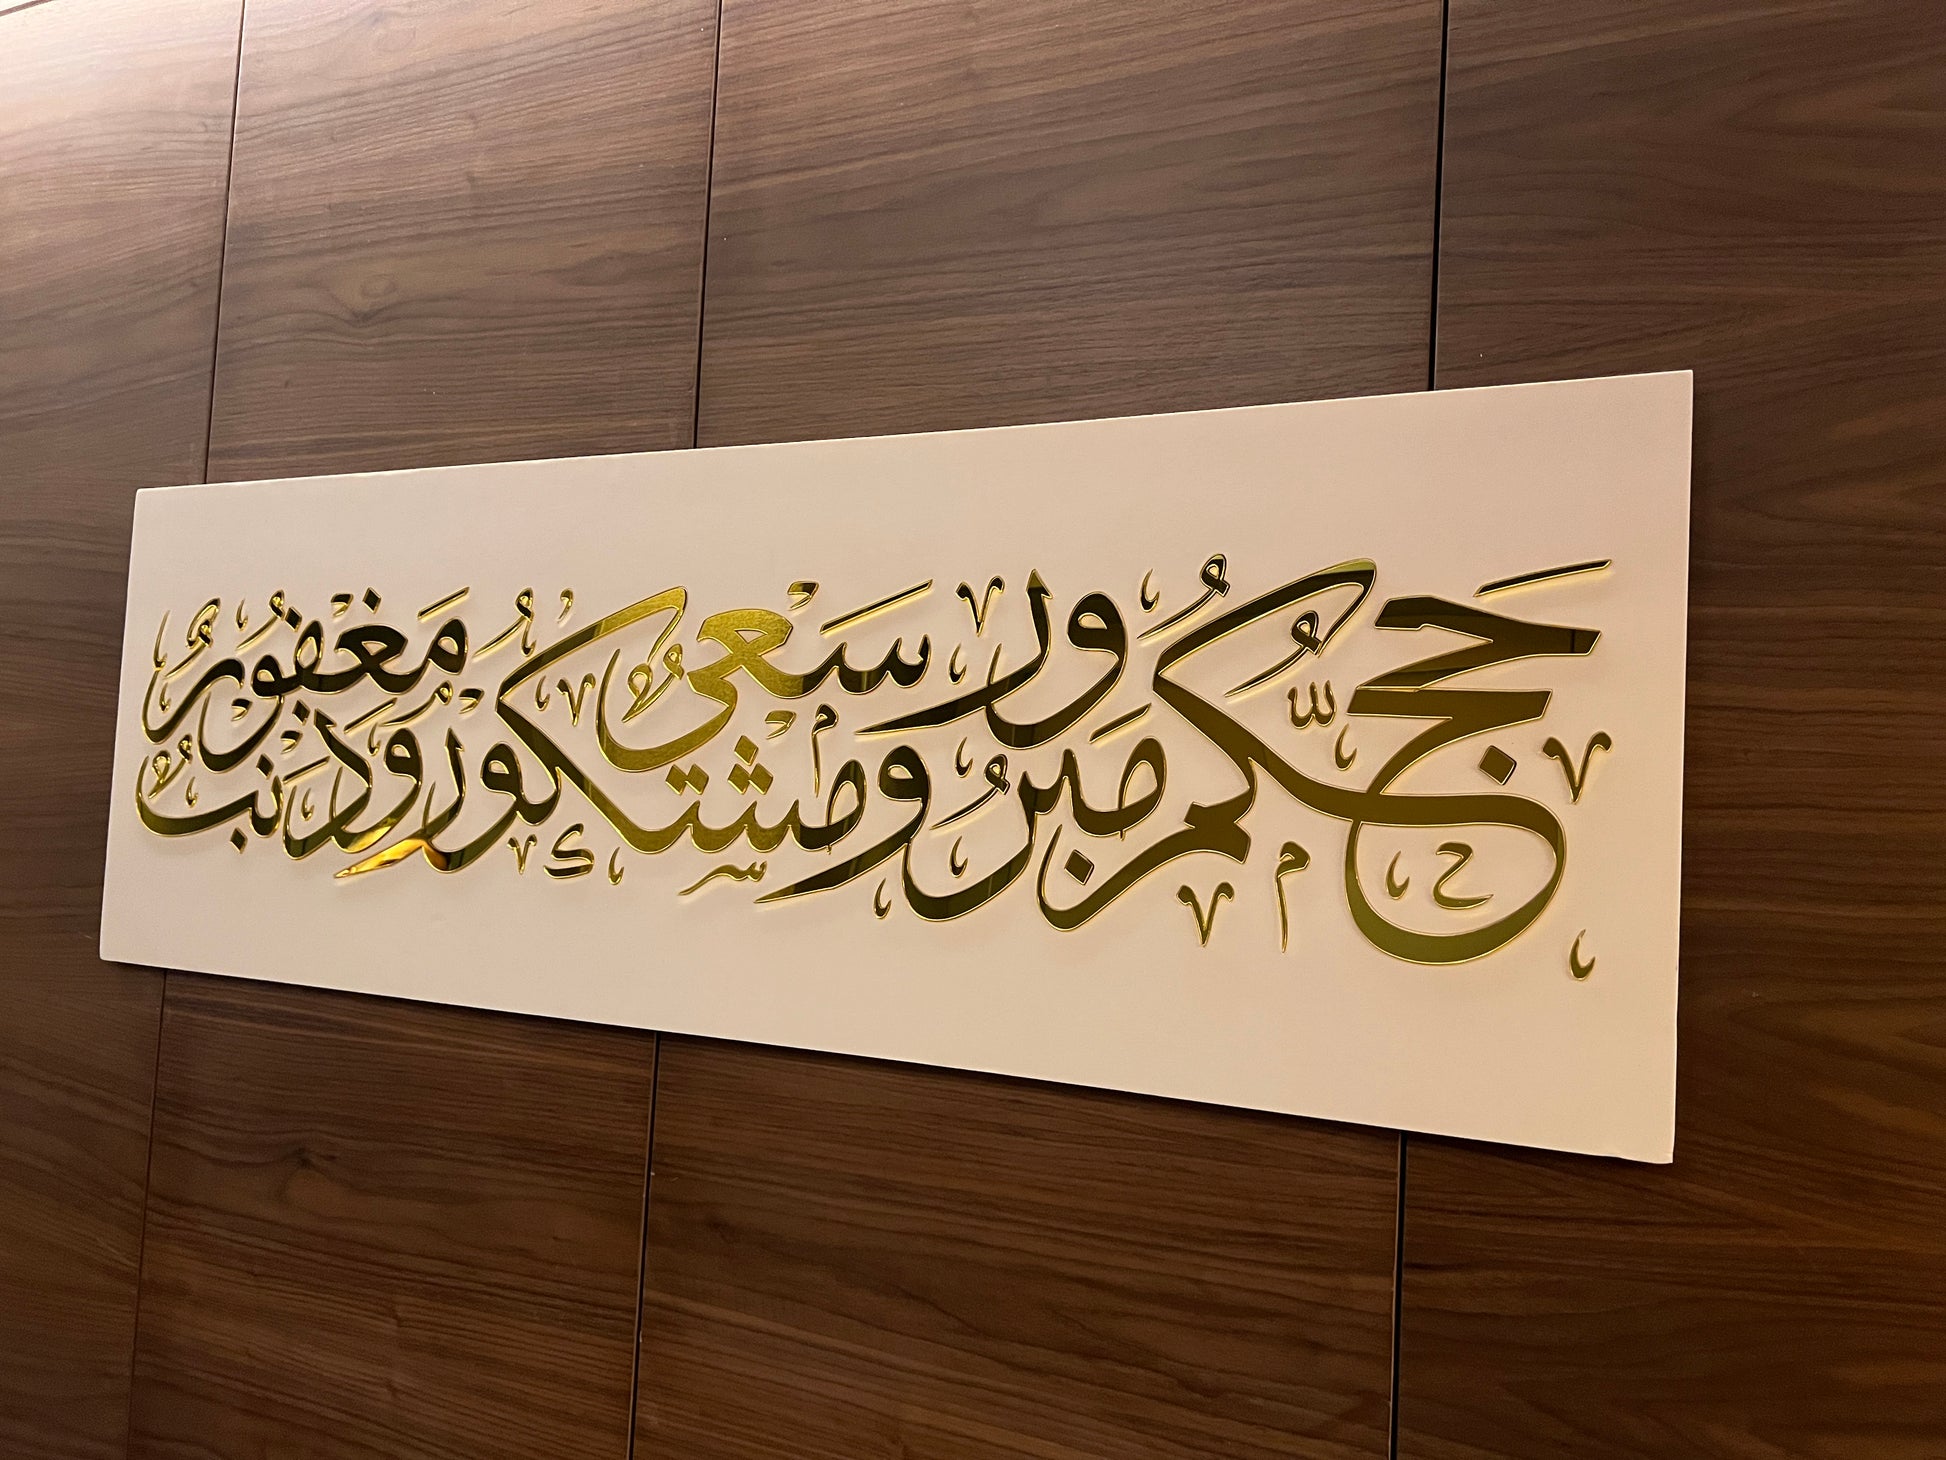 حَجُّكُم مَبرُور وسَعْيٌ مَشْكُورٌ وذَنْبٌ مَغْفُورٌ